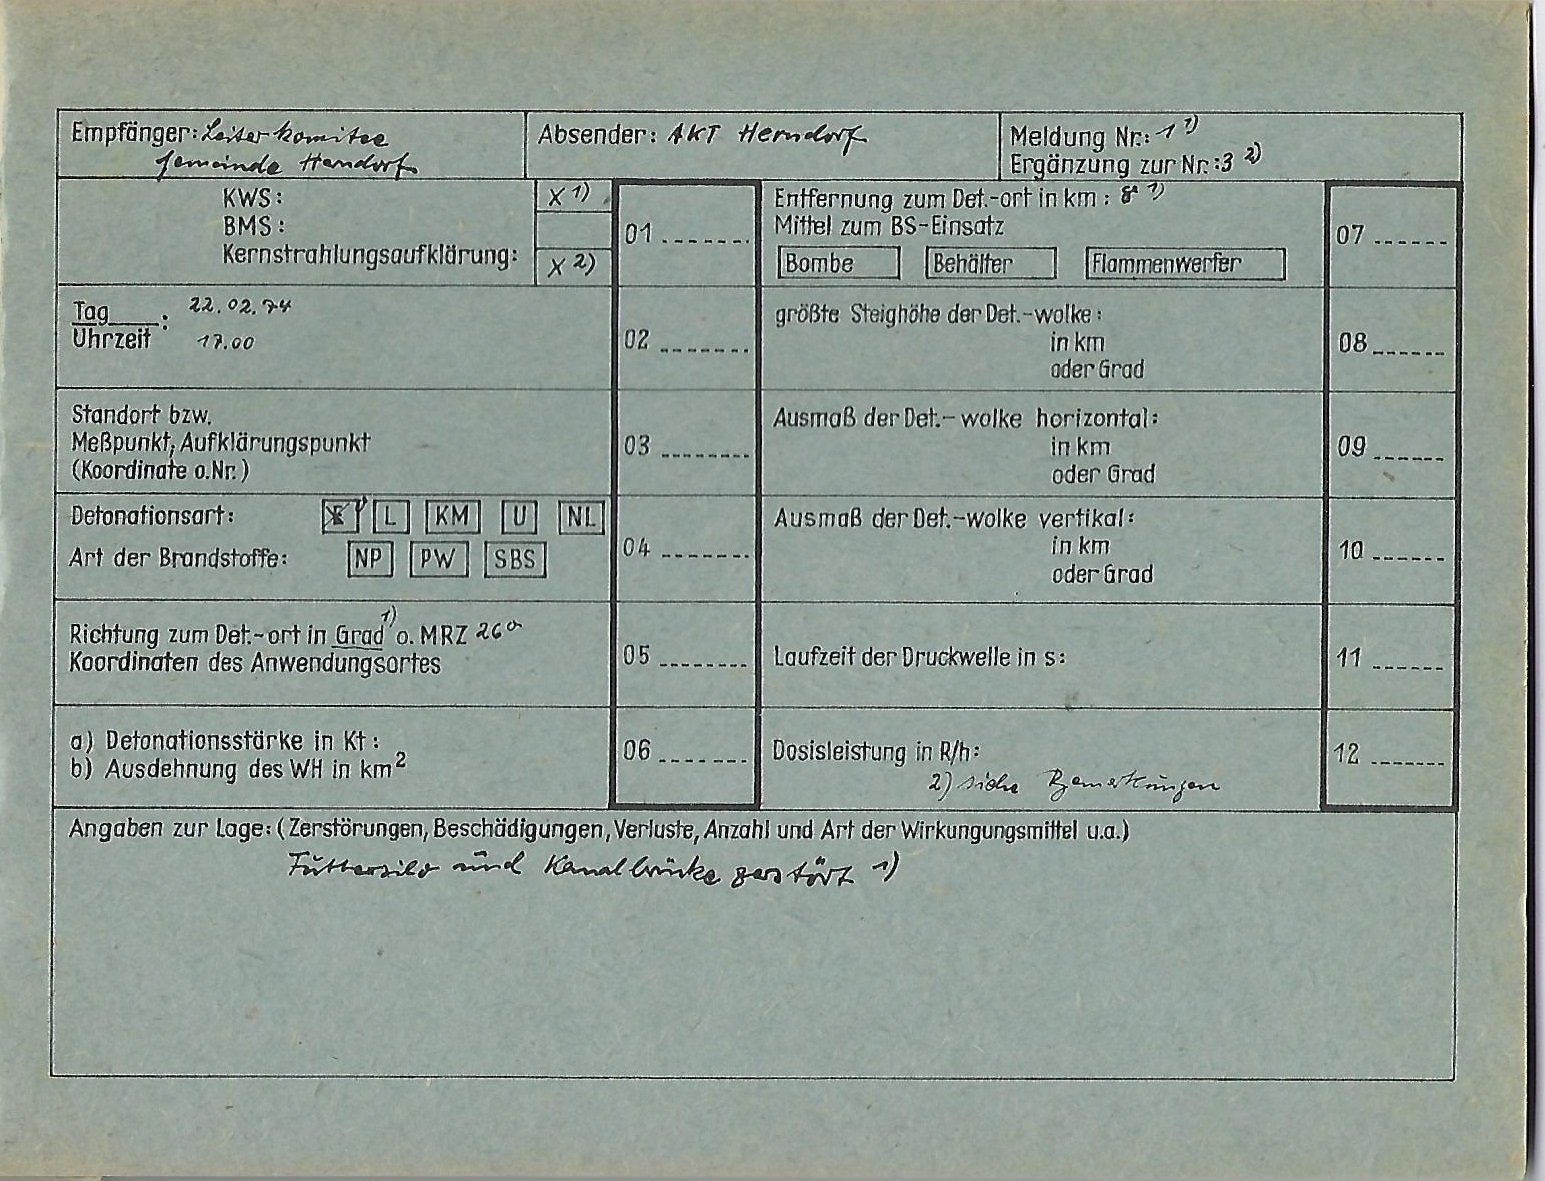 Empfänger: Leiter komitee
Gemeinde Herndorf
Absender: AKT Herndorf
Meldung Nr.: 1 1)
Ergänzung zur Nr.: 3 2)
KWS:
X 1)
BMS:
Kernstrahlungsaufklärung:
X 2)
01
Entfernung zum Det.-ort in km: 8 1)
Mittel zum BS-Einsatz
Bombe Behälter Flammenwerfer
07
Tag : 22.02.74
Uhrzeit 17.00
02
größte Steighöhe der Det.-wolke:
in km
oder Grad
08
Standort bzw.
Meßpunkt, Aufklärungspunkt
(Koordinate o. Nr.)
03
Ausmaß der Det.-wolke horizontal:
in km
oder Grad
09
Detonationsart: E L KM U NL
Art der Brandstoffe: NP PW SBS
04
Ausmaß der Det.-wolke vertikal:
in km
oder Grad
10
Richtung zum Det.-ort in Grad 1) o. MRZ 26°
Koordinaten des Anwendungsortes
05
Laufzeit der Druckwelle in s:
11
a) Detonationsstärke in Kt:
b) Ausdehnung des WH in km2
06
Dosisleistung in R/h:
2) siehe Bemerkungen
12
Angaben zur Lage: (Zerstörungen, Beschädigungen, Verluste, Anzahl und Art der Wirkungungsmittel u.a.)
Futtersilo und Kanalbrücke zerstört 1)